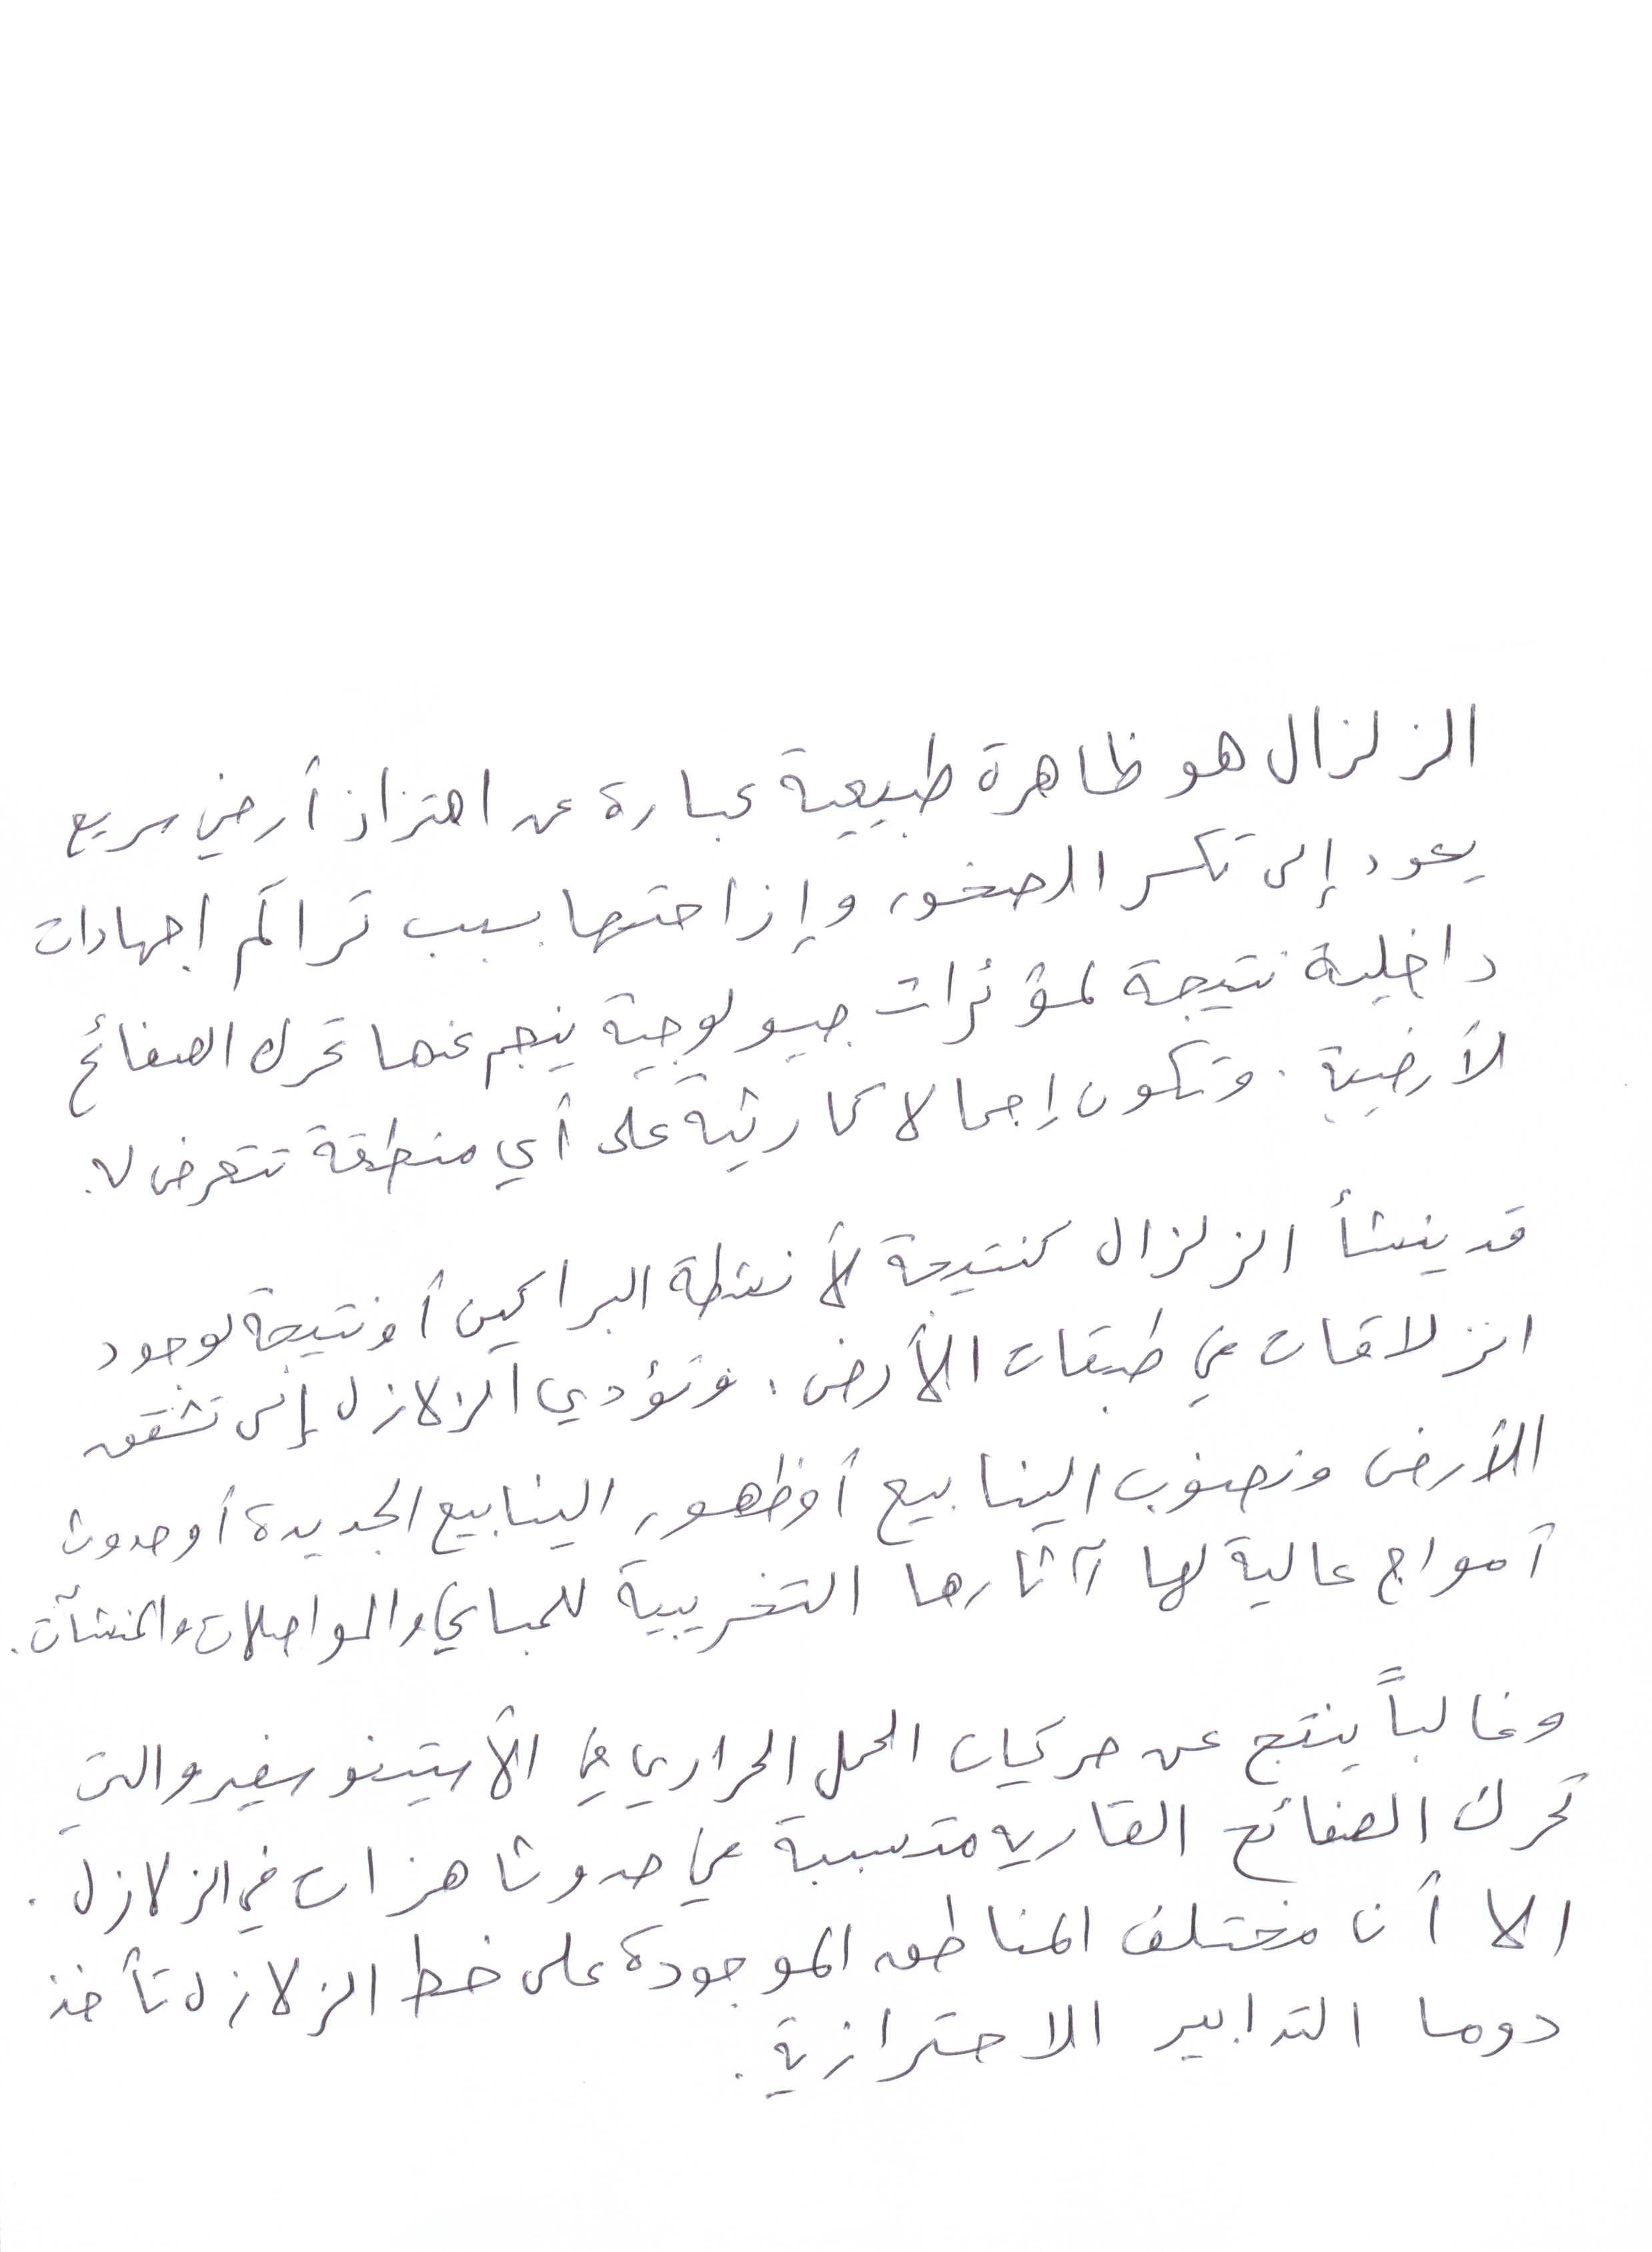 الزلزال هو ظاهرة طبيعية عبارة عن اهتزاز أرضي سريع
يعود إلى تكسر الصخور وإزاحتها بسبب تراكم اجهادات
داخلية نتيجة لمؤثرات جيولوجية ينجم عنها تحرك الصفائح
لأرضية. وتكون إجمالا كارثية على أي منطقة تتعرض له.
قد ينشأ الزلزال كنتيجة لأنشطة البراكين أو نتيجة لوجود
انزلاقات في طبقات الأرض. وتؤدي الزلازل إلى تشقق
الأرض ونضوب الينابيع أو ظهور الينابيع الجديدة أو حدوث
أمواج عالية لها آثارها التخريبية للمباني والمواصلات والمنشآت.
وغالباً ينتج عن حركيات الحمل الحراري في الأستينوسفير والتي
تحرك الصفائح القارية متسببة في حدوث هزات في الزلازل.
الا أن مختلف المناطق الموجودة على خط الزلازل تأخذ
دوما التدابير الاحترازية.